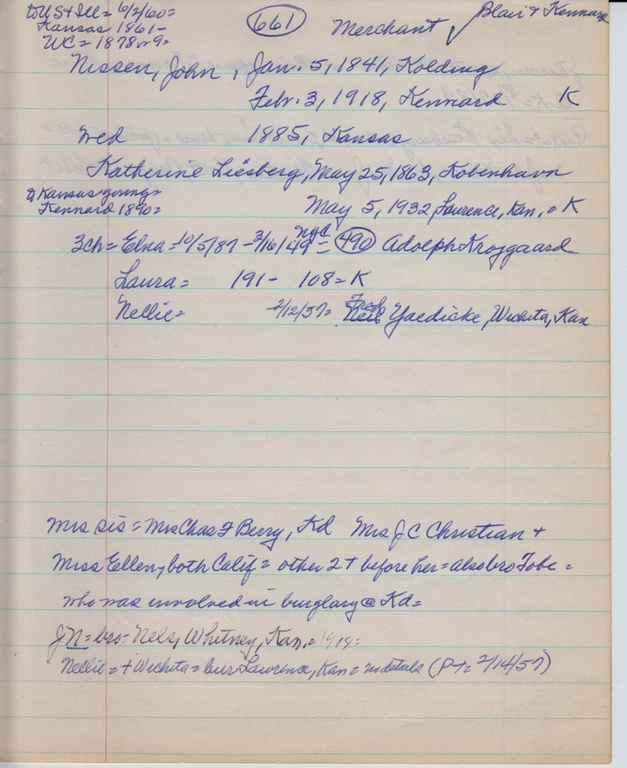 to US + Ill = 6/2/60 =
Kansas 1861 -
WC = 1878 or 9 =
661
Merchant
Blair + Kennard
Nissen, John, Jan. 5, 1841, Kolding
Febr. 3, 1918, Kennard K
Wed 1885, Kansas
Katherine Liesberg, May 25, 1863, Kobenhavn
to Kansas young =
Kennard 1890 =
May 5, 1932, Laurence, Kan, = K
3ch = Elna = 10/5/87 - 3/16/49 = NYC 490 Adolph Krojgaard
Laura = 191- 108 = K
Nellie = -2/12/57 = Fred Yaedicke, Wichita, Kan
Mrs sis = Mrs Chas F Berry, Kd Mrs J C Christian +
Miss Ellen, both Calif = other 2 + before her = also bro Tobe =
who was involved in burglary @ Kd =
JN = bro = Nels, Whitney, Kan, = 1918 =
Nellie = + Wichita = bur Lawrence, Kan = no details (PT = 2/14/57)